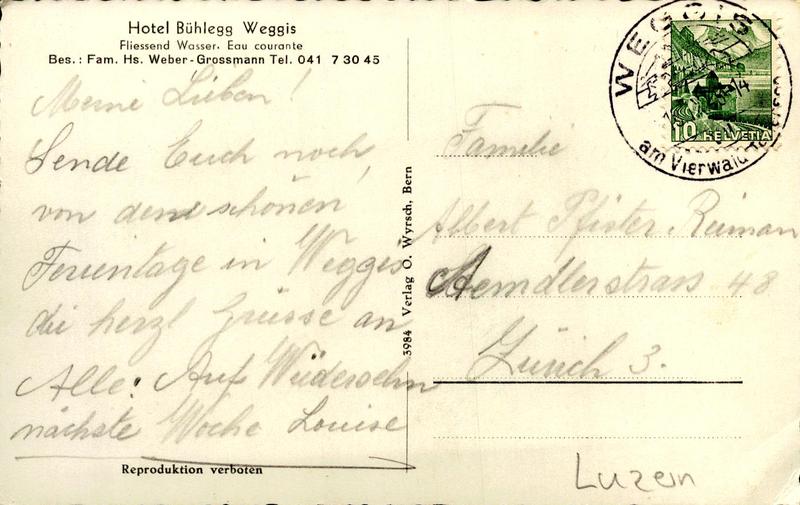 Hotel Bühlegg Weggis
Fliessend Wasser. Eau courante
Bes.: Fam. Hs. Weber-Grossmann Tel. 041 7 30 45
Meine Lieben!
Sende Euch noch,
von den schönen
Ferientage in Wegges
die herzl Grüsse an
Alle. Auf Wiedersehn
nächste Woche Louise
Reproduktion verboten
3984 Verlag O. Wyrsch, Bern
WEGGIS
am Vierwald
10 HELVETIA
Familie
Albert Pfister Reiman
48
Zürich 3.
Luzern